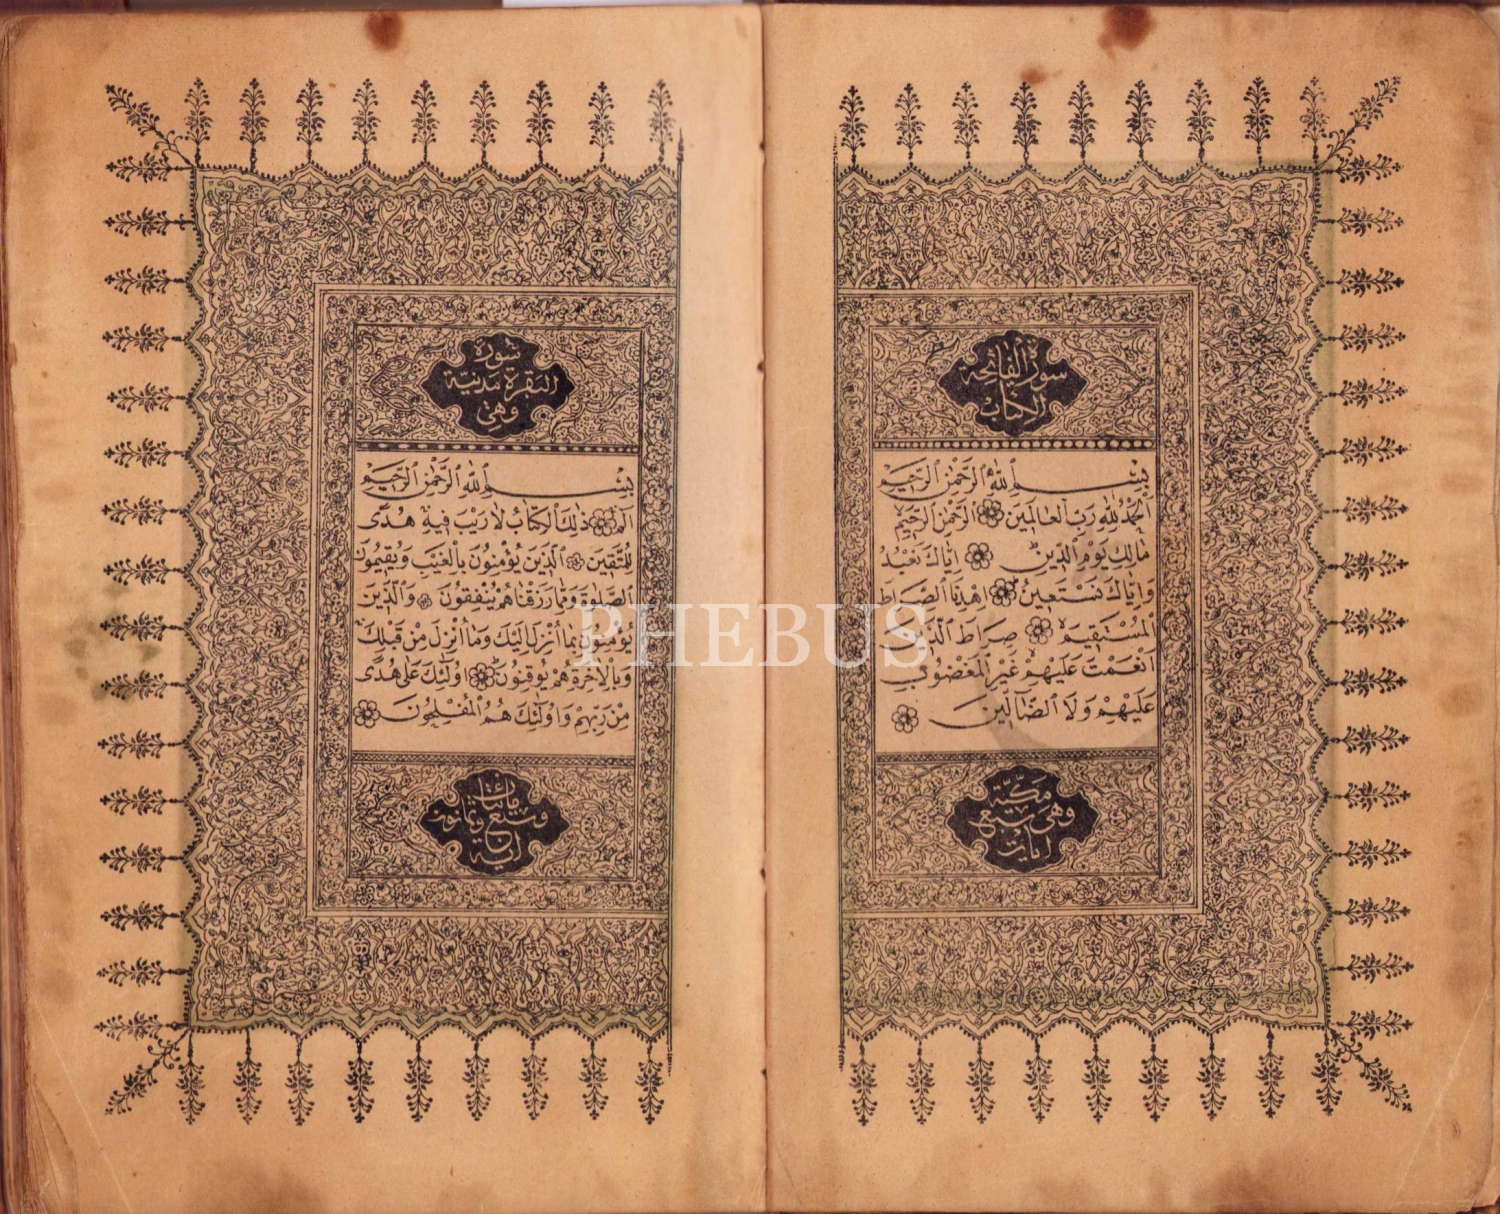 سورة الفاتحة
الكتاب
بِسْمِ ٱللهِ ٱلرَّحْمٰنِ ٱلرَّحِيمِ
اَلْحَمْدُ لِلّٰهِ رَبِّ الْعَالَمِينَ ۞ اَلرَّحْمٰنِ الرَّحِيمِ
مَالِكِ يَوْمِ الدِّينِ ۞ اِيَّاكَ نَعْبُدُ
وَاِيَّاكَ نَسْتَعِينُ ۞ اِهْدِنَا الصِّرَاطَ
الْمُسْتَقِيمَ ۞ صِرَاطَ الَّذِينَ
اَنْعَمْتَ عَلَيْهِمْ غَيْرِ الْمَغْضُوبِ
عَلَيْهِمْ وَلَا الضَّالِّينَ ۞
مكّيّة
وهي سبع
ايات
سورة
البقرة مدنية
وهي
بِسْمِ ٱللهِ ٱلرَّحْمٰنِ ٱلرَّحِيمِ
الٓمٓ ۞ ذٰلِكَ الْكِتَابُ لَا رَيْبَ فِيهِ هُدًى
لِلْمُتَّقِينَ ۞ اَلَّذِينَ يُؤْمِنُونَ بِالْغَيْبِ وَيُقِيمُونَ
الصَّلٰوةَ وَمِمَّا رَزَقْنَاهُمْ يُنْفِقُونَ ۞ وَالَّذِينَ
يُؤْمِنُونَ بِمَا اُنْزِلَ اِلَيْكَ وَمَا اُنْزِلَ مِنْ قَبْلِكَ
وَبِالْاٰخِرَةِ هُمْ يُوقِنُونَ ۞ اُولٰٓئِكَ عَلٰى هُدًى
مِنْ رَبِّهِمْ وَاُولٰٓئِكَ هُمُ الْمُفْلِحُونَ ۞
مائتا
وتسع وثمانون
اية
PHEBUS